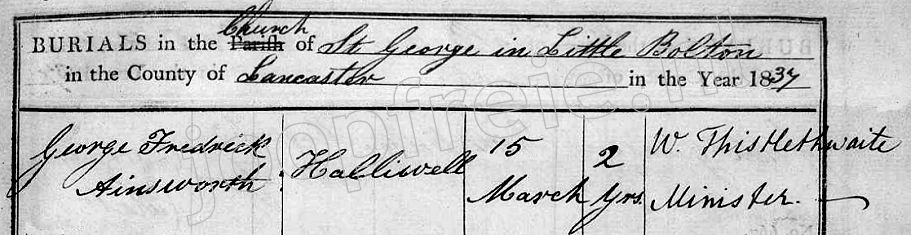 BURIALS in the Church Parish of St George in Little Bolton
in the County of Lancaster in the Year 1837
George Fredrick Ainsworth
Halliwell
15 March
2 Yrs.
W. Thistlethwaite Minister.